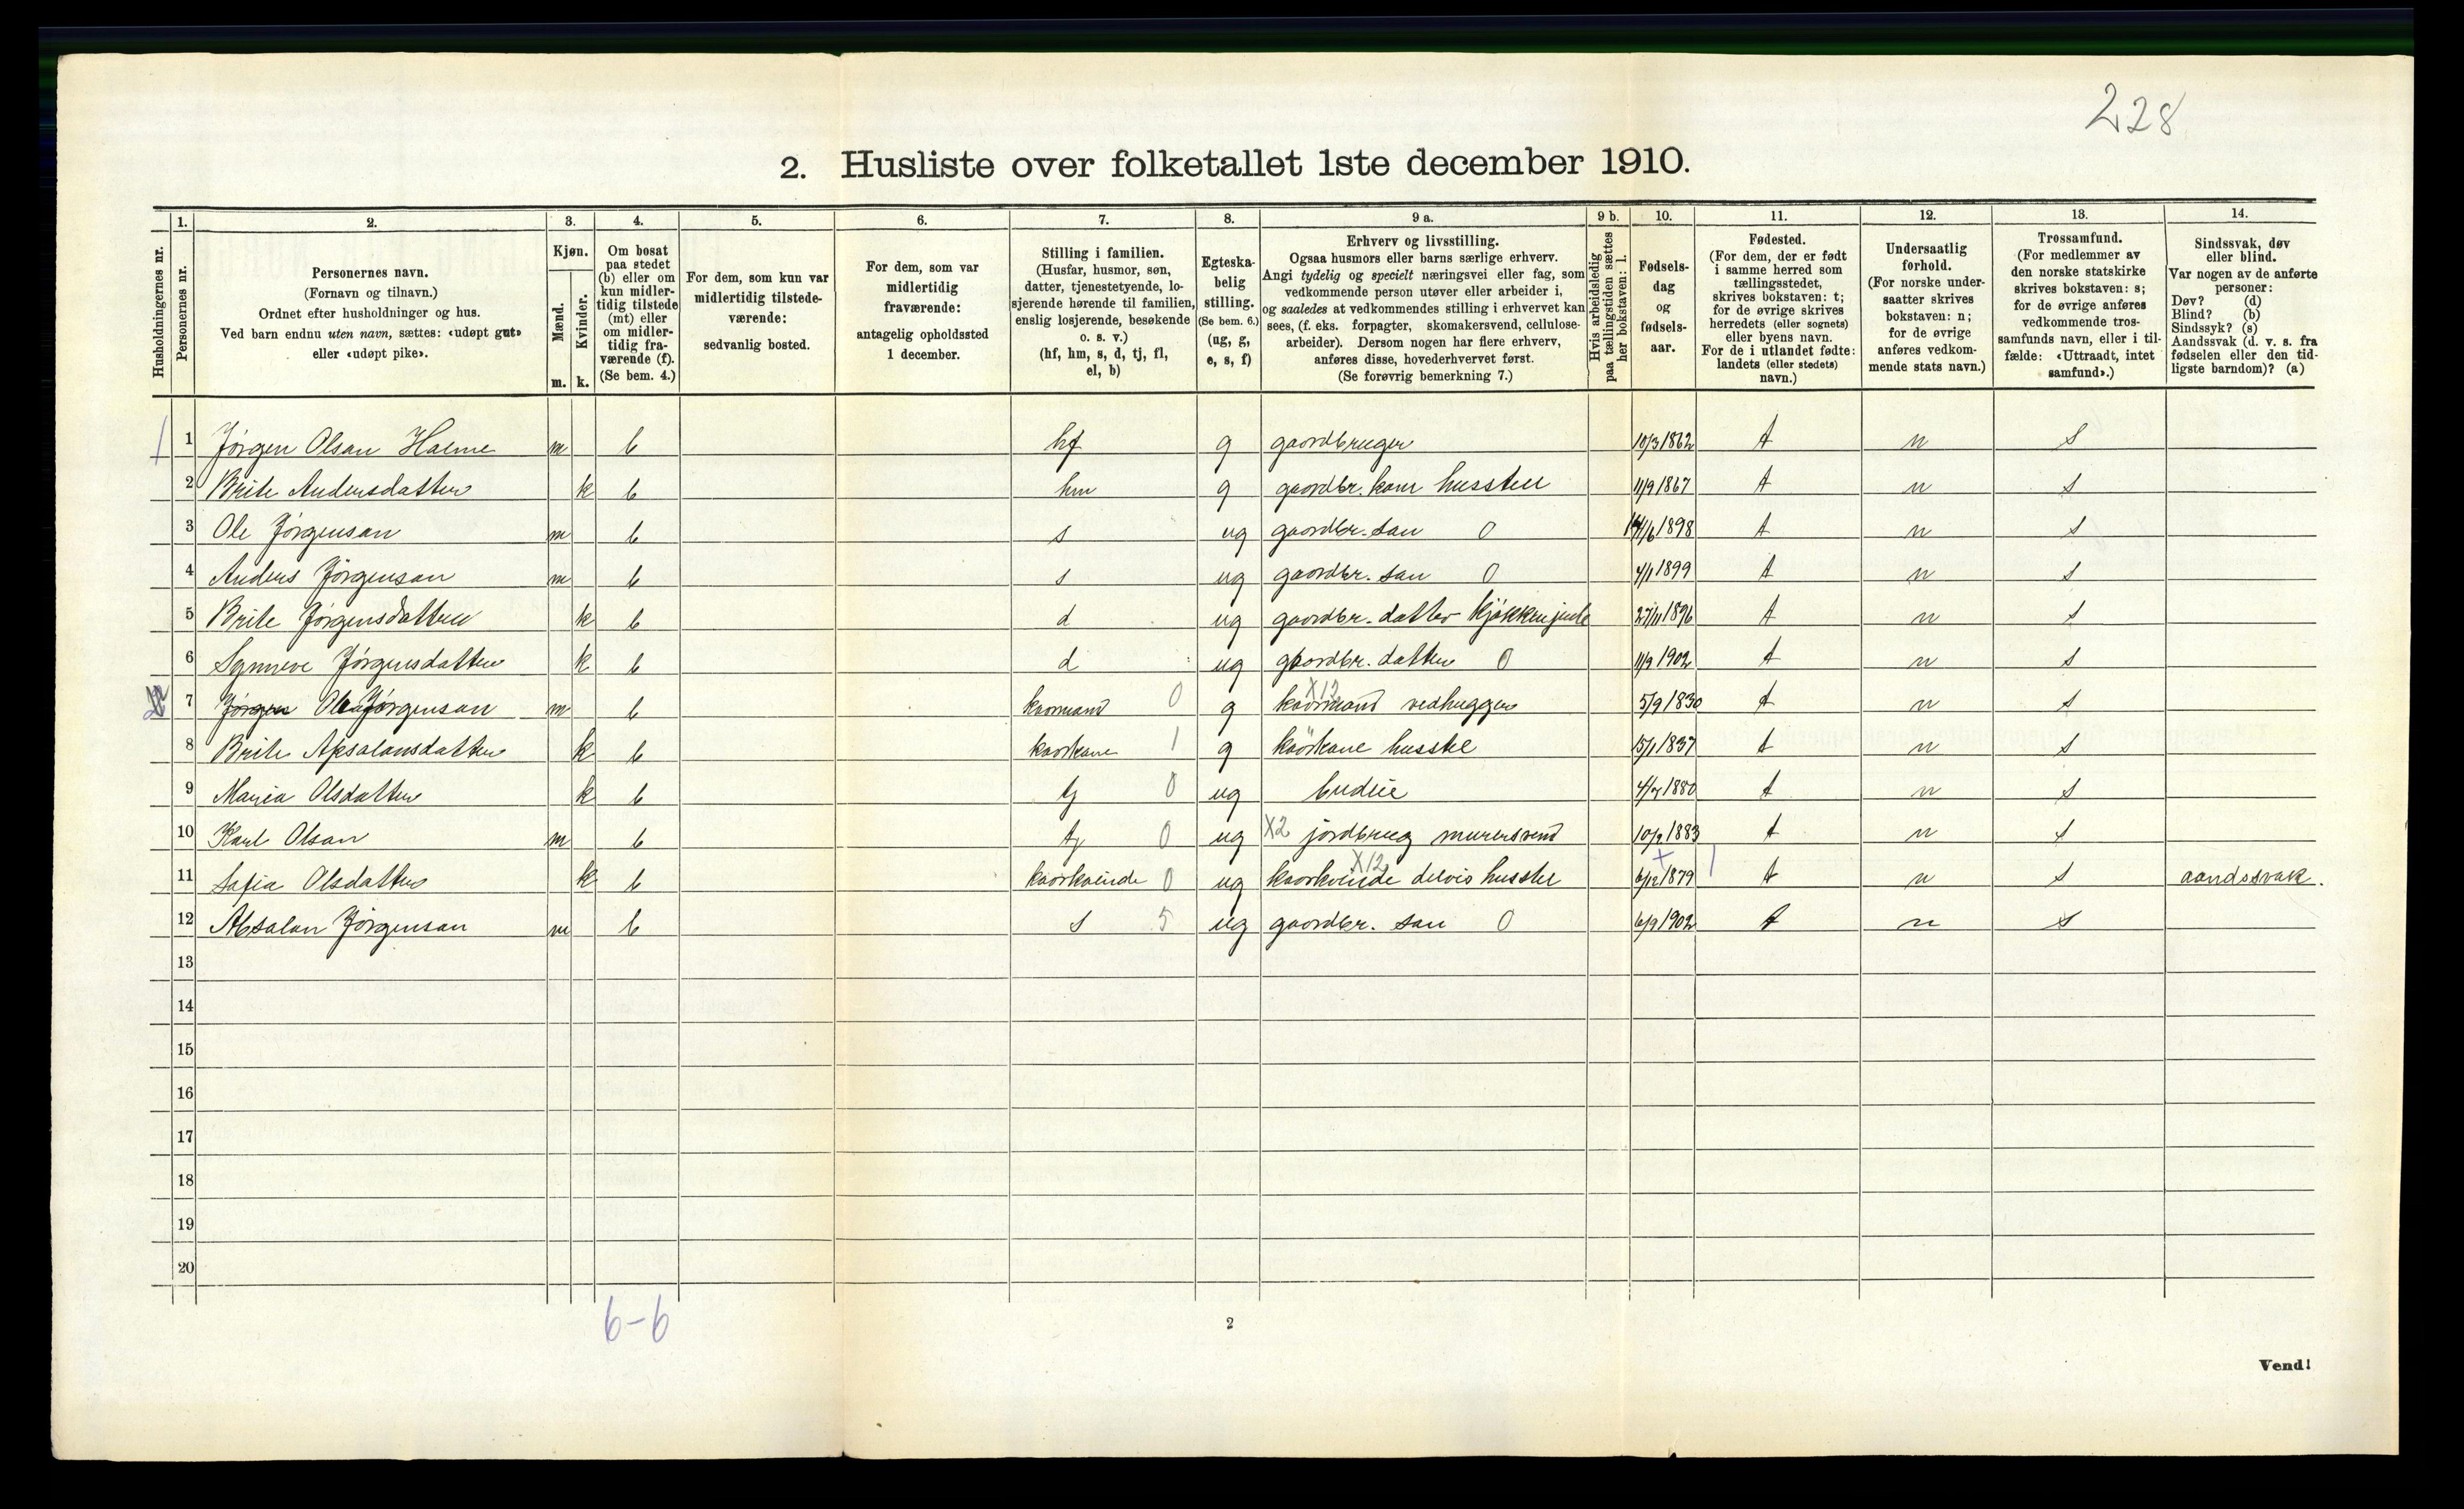 228
2. Husliste over folketallet 1ste december 1910.
Husholdningernes nr.
1. Personernes nr.
2. Personernes navn.
(Fornavn og tilnavn.)
Ordnet efter husholdninger og hus.
Ved barn endnu uten navn, sættes: «udøpt gut»
eller «udøpt pike».
3. Kjøn.
Mænd. m.
Kvinder. k.
4. Om bosat
paa stedet
(b) eller om
kun midler-
tidig tilstede
(mt) eller
om midler-
tidig fra-
værende (f).
(Se bem. 4.)
5. For dem, som kun var
midlertidig tilstede-
værende:
sedvanlig bosted.
6. For dem, som var
midlertidig
fraværende:
antagelig opholdssted
1 december.
7. Stilling i familien.
(Husfar, husmor, søn,
datter, tjenestetyende, lo-
sjerende hørende til familien,
enslig losjerende, besøkende
o. s. v.)
(hf, hm, s, d, tj, fl,
el, b)
8. Egteska-
belig
stilling.
(Se bem. 6.)
(ug, g,
e, s, f)
9 a. Erhverv og livsstilling.
Ogsaa husmors eller barns særlige erhverv.
Angi tydelig og specielt næringsvei eller fag, som
vedkommende person utøver eller arbeider i,
og saaledes at vedkommendes stilling i erhvervet kan
sees, (f. eks. forpagter, skomakersvend, cellulose-
arbeider). Dersom nogen har flere erhverv,
anføres disse, hovederhvervet først.
(Se forøvrig bemerkning 7.)
9 b. Hvis arbeidsledig
paa tællingstiden sættes
her bokstaven: l.
10. Fødsels-
dag
og
fødsels-
aar.
11. Fødested.
(For dem, der er født
i samme herred som
tællingsstedet,
skrives bokstaven: t;
for de øvrige skrives
herredets (eller sognets)
eller byens navn.
For de i utlandet fødte:
landets (eller stedets)
navn.)
12. Undersaatlig
forhold.
(For norske under-
saatter skrives
bokstaven: n;
for de øvrige
anføres vedkom-
mende stats navn.)
13. Trossamfund.
(For medlemmer av
den norske statskirke
skrives bokstaven: s;
for de øvrige anføres
vedkommende tros-
samfunds navn, eller i til-
fælde: «Uttraadt, intet
samfund».)
14. Sindssvak, døv
eller blind.
Var nogen av de anførte
personer:
Døv? (d)
Blind? (b)
Sindssyk? (s)
Aandssvak (d. v. s. fra
fødselen eller den tid-
ligste barndom)? (a)
1 1 Jørgen Olsan Halme m b hf g gaardbruger 10/3 1862 t n s
2 Brite Andersdatter k b hm g gaardbr. kone husstell 11/9 1867 t n s
3 Ole Jørgensan m b s ug gaardbr. san 0 14/6 1898 t n s
4 Anders Jørgensan m b s ug gaardbr. san 0 4/1 1899 t n s
5 Brite Jørgensdatter k b d ug gaardbr. datter kjøkkenjente 27/11 1896 t n s
6 Synneve Jørgensdatter k b d ug gaardbr. datter 0 11/9 1902 t n s
2 7 Jørgen Ole Jørgensan m b kaarmand 0 g kaarmand X12 vedhugger 5/9 1830 t n s
8 Brite Apsalansdatter k b kaarkone 1 g kaarkone husstel 15/1 1837 t n s
9 Maria Olsdatter k b tj 0 ug budeie 1880 t n s
10 Karl Olsan m b tj 0 ug X2 jordbrug murersvend 10/2 1883 t n s
11 Safia Olsdatter k b kaarkvinde 0 ug kaarkvinde X12 delvis husstel 6/12 1879 t n s aandssvak.
12 Absalan Jørgensan m b s 5 ug gaardbr. san 0 6/9 1902 t n s
13
14
15
16
17
18
19
20
6-6
2
Vend!